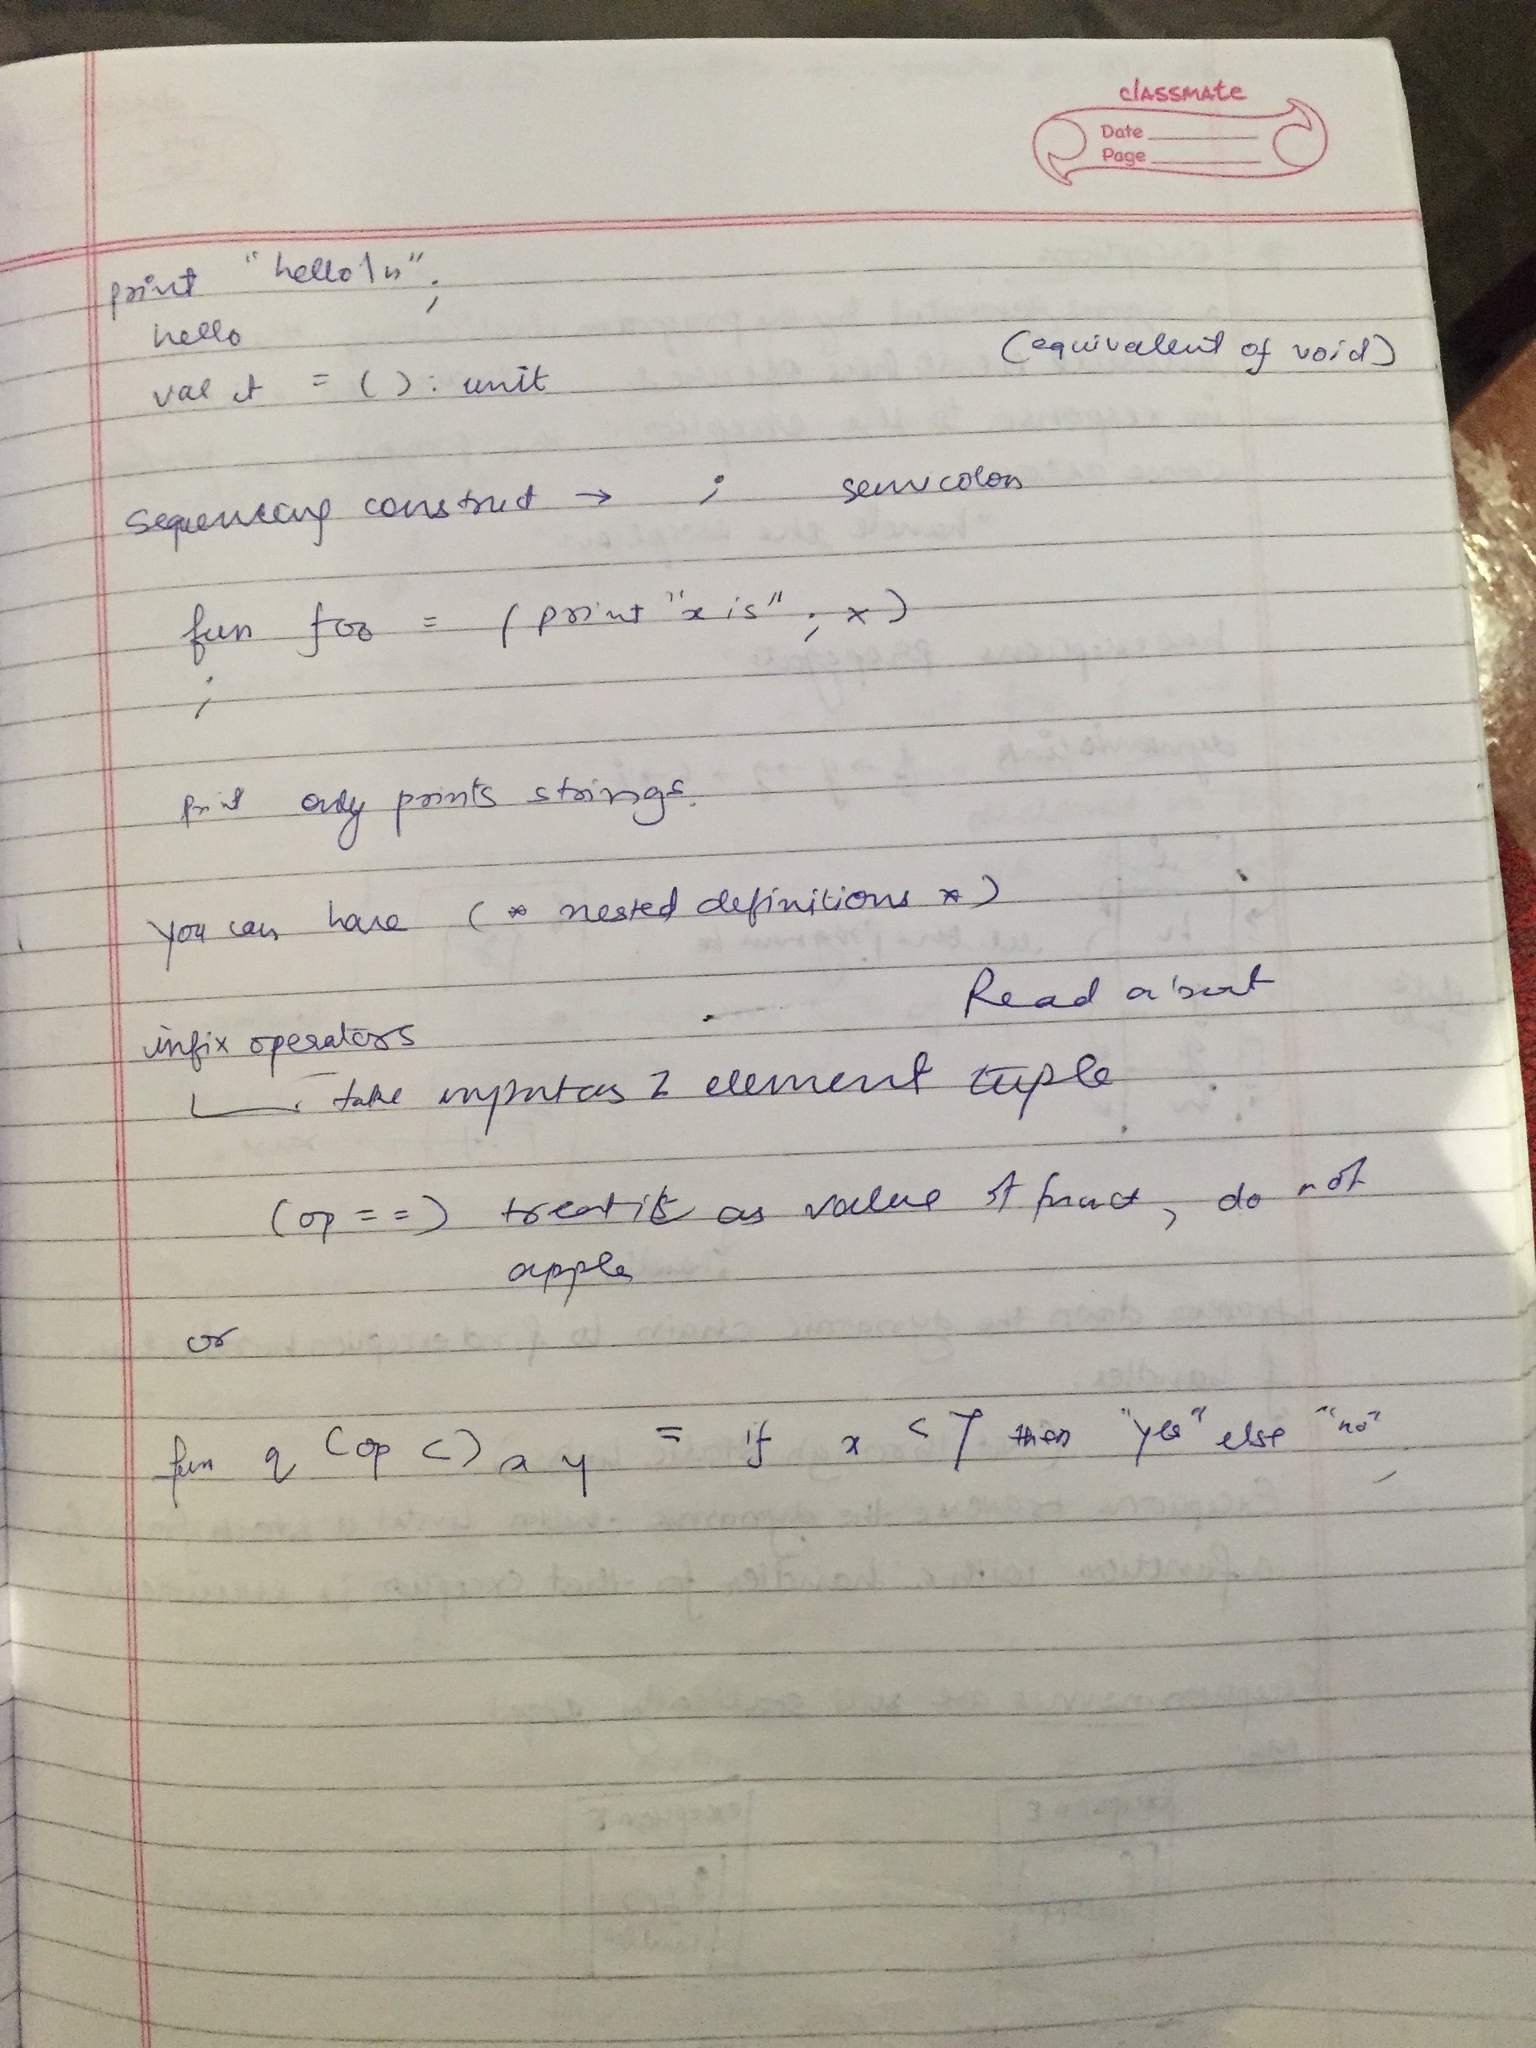 classmate
Date
Page
print "hello\n";
hello
(equivalent of void)
val it = () : unit
sequencing construct → ; semicolon
fun foo = (print "x is" ; x)
;
print only prints strings.
you can have (* nested definitions *)
Read about
infix operators
take input as 2 element tuple
(op ==) treat it as value of funct, do not
apple
or
fun q (op <) x y = if x < y then "yes" else "no";